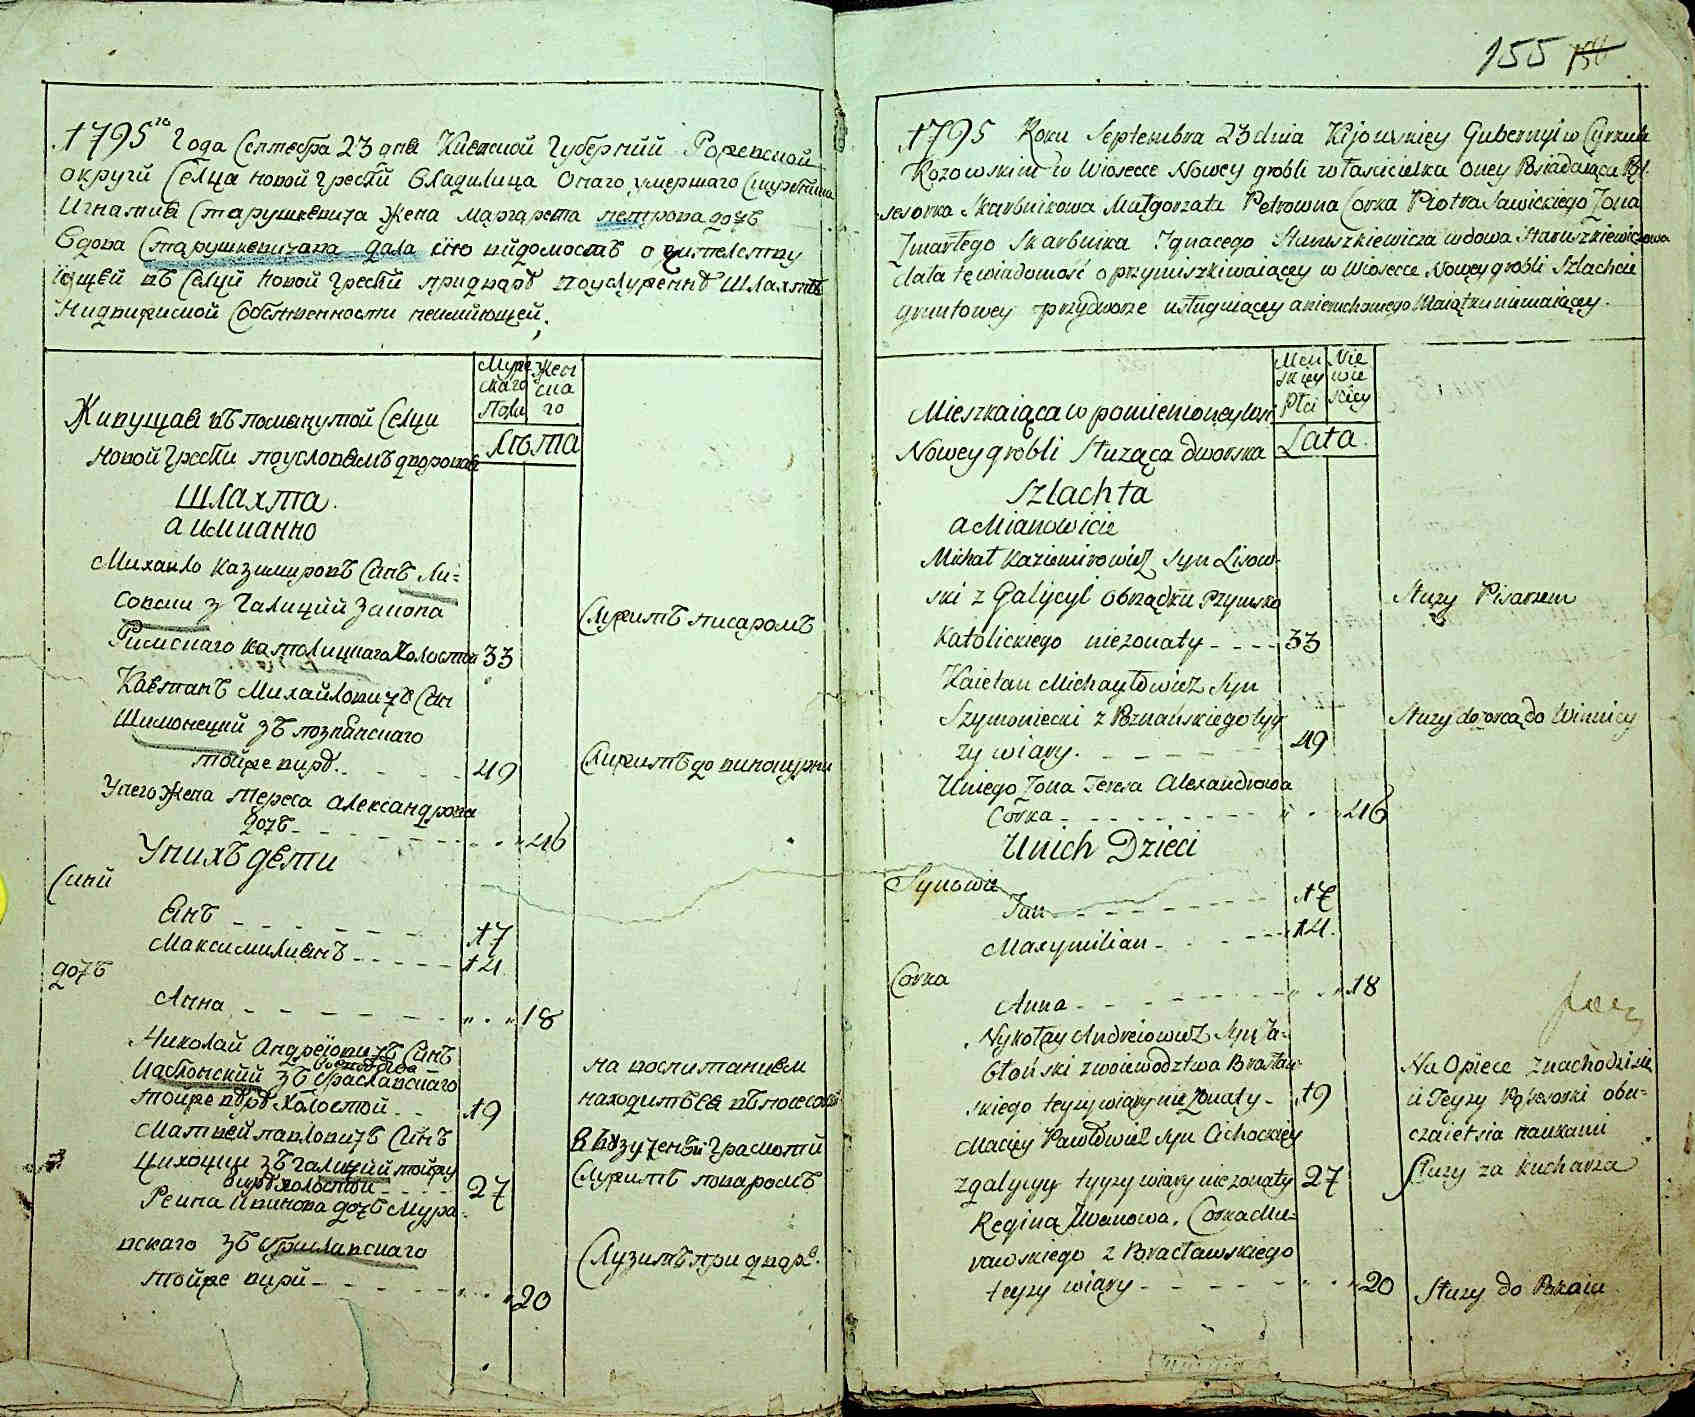 1795го Года Септебра 23 дня Киевской Губернии
округи Селца новой гребли Владилица Онаго умершаго
Игнатия Старушкевича жена Маргарета петрова дочь
вдова Старушкевичова дала сию видомость о
в Селци новой гребли
собственности неимиющей.
Муже скаго Полу
Женскаго
Лѣта
Живущая въ помянутой Селци
новой гребли
Шлахта
а имианно
Михайло Казимировъ Синъ Ли=
совски з Галиции закона
Римскаго католицкаго холостой 33
Служитъ писаромъ
Каетанъ Михайловичъ Син
Шимонецкий зъ познанскаго
тойже вири 49
Служитъ до винокурни
У него Жена Тереса Александрова
дочь 46
У нихъ дети
Сини
Янъ 17
Максимилиянъ 14
дочь
Анна 18
Николай Андрейовичъ Синъ
Яблонский зъ воеводства Браславскаго
тойже виры Холостой 19
на воспитанием
находится
Матвей павловичъ Синъ
Цихоцки зъ галиции тойже
виры холостой 27
Служитъ поваромъ
Реина Иванова дочь Мура=
вскаго зъ Браславскаго
тойже вири 20
Служитъ при дворе.
155
1795 Roku Septembra 23 dnia Kijowskiey Gubernyi w Cyrkule
Rozowskim w Wiosecce Nowey grobli właścicielka Oney Posiadaiąca
sesorka Skarbnikowa Małgorzata Petrowna Corka Piotra Sawickiego Żona
Zmarłego Skarbnika Ignacego Staruszkiewicza wdowa Staruszkiewiczowa
dała tę wiadomość o przymiszkiwaiącey w Wiosecce Nowey grobli Szlachcie
gruntowey przydworze usługuiącey a nieruchomego Maiątku niemaiącey.
Men skiey Płci
Nie wie sciey
Lata
Mieszkaiąca w pomienioney
Nowey grobli Służąca dworska
Szlachta
a Mianowicie
Michał Kazimirowicz Syn Lisow-
ski z Galycyi obrządku Rzymsko
Katolickiego nieżonaty 33
Służy Pisarzem
Kaietan Michayłowicz Syn
Szymoniecki z Poznańskiego tyy
zy wiary. 49
Służy dozorcą do Winnicy
U niego Żona Teresa Alexandrowa
Corka 46
U nich Dzieci
Synowie
Jan 17
Maxymilian 14.
Corka
Anna 18
Nykołay Andreiowicz Syn Ia=
błoński z woiewodztwa Bracław
skiego teyzy wiary nieżonaty 19
Na Opiece znachodzisie
u Teyzy Possesorki obu=
czaietsia naukami
Macięy Pawłowicz Syn Cichockiey
z galycyy tyyzy wiary nieżonaty 27
Służy za kucharza
Regina Jwanowa, Corka Mu=
rawskiego z Bracławskiego
teyzy wiary 20
Służy do Pokoiu